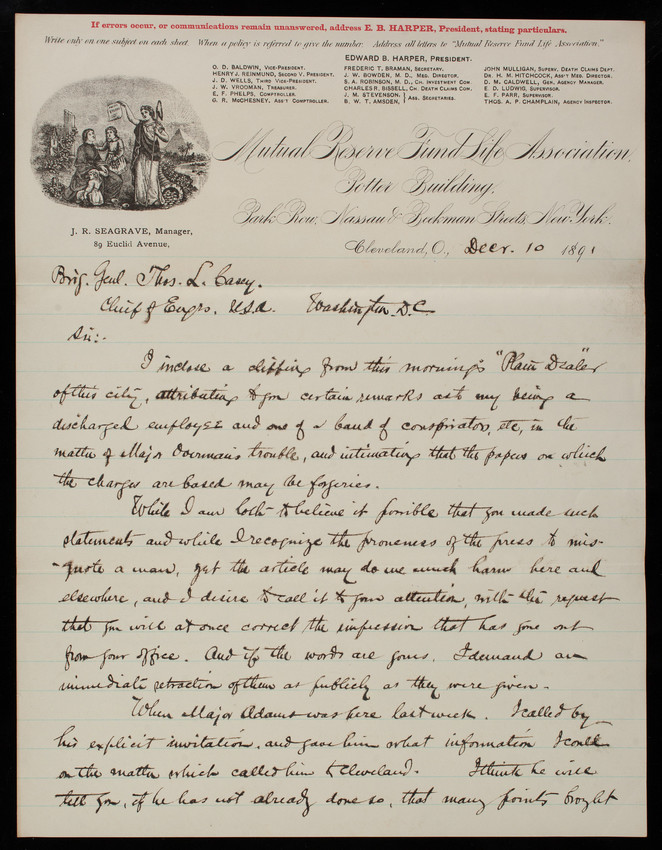 If errors occur, or communications remain unanswered, address E. B. HARPER, President, stating particulars.
Write only on one subject on each sheet. When a policy is referred to give the number. Address all letters to "Mutual Reserve Fund Life Association."
EDWARD B. HARPER, PRESIDENT.
O. D. BALDWIN, VICE-PRESIDENT.
HENRY J. REINMUND, SECOND V. PRESIDENT.
J. D. WELLS, THIRD VICE-PRESIDENT.
J. W. VROOMAN, TREASURER.
E. F. PHELPS, COMPTROLLER.
G. R. McCHESNEY, ASS'T COMPTROLLER.
FREDERIC T. BRAMAN, SECRETARY.
J. W. BOWDEN, M. D., MED. DIRECTOR.
S. A. ROBINSON, M. D., CH. INVESTMENT COM.
CHARLES R. BISSELL, CH. DEATH CLAIMS COM.
J. M. STEVENSON,
B. W. T. AMSDEN, } ASS. SECRETARIES.
JOHN MULLIGAN, SUPERV. DEATH CLAIMS DEPT.
DR. H. M. HITCHCOCK, ASS'T MED. DIRECTOR.
D. M. CALDWELL, GEN. AGENCY MANAGER.
E. D. LUDWIG, SUPERVISOR.
E. F. PARR, SUPERVISOR.
THOS. A. P. CHAMPLAIN, AGENCY INSPECTOR.
Mutual Reserve Fund Life Association,
Potter Building,
Park Row, Nassau & Beekman Streets, New York.
J. R. SEAGRAVE, Manager,
89 Euclid Avenue,
Cleveland, O., Decr. 10 1891
Brig. Genl. Thos. L. Casey.
Chief of Engrs. U.S.A. Washington. D.C.
Sir:-
I inclose a clipping from this morning's "Plain Dealer"
of this city, attributing to you certain remarks as to my being a
discharged employee and one of a band of conspirators, etc, in the
matter of Major Overman's trouble, and intimating that the papers on which
the charges are based may be forgeries.
While I am loth to believe it possible that you made such
statements and while I recognize the proneness of the press to mis-
-quote a man, yet the article may do me much harm here and
elsewhere, and I desire to call it to your attention, with the request
that you will at once correct the impression that has gone out
from your office. And if the words are yours, I demand an
immediate retraction of them as publicly as they were given.
When Major Adams was here last week. I called by
his explicit invitation, and gave him what information I could
on the matter which called him to Cleveland. I think he will
tell you, if he has not already done so, that many points brought